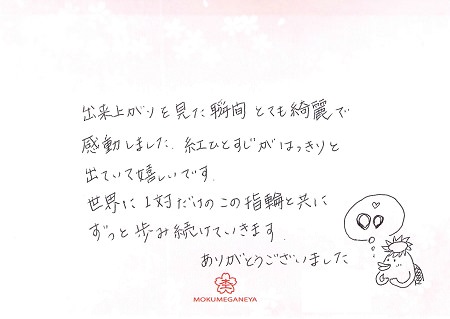 出来上がりを見た瞬間とても綺麗で
感動しました. 紅ひとすじがはっきりと
出ていて嬉しいです.
世界に1対だけのこの指輪と共に
ずっと歩み続けていきます.
ありがとうございました
MOKUMEGANEYA